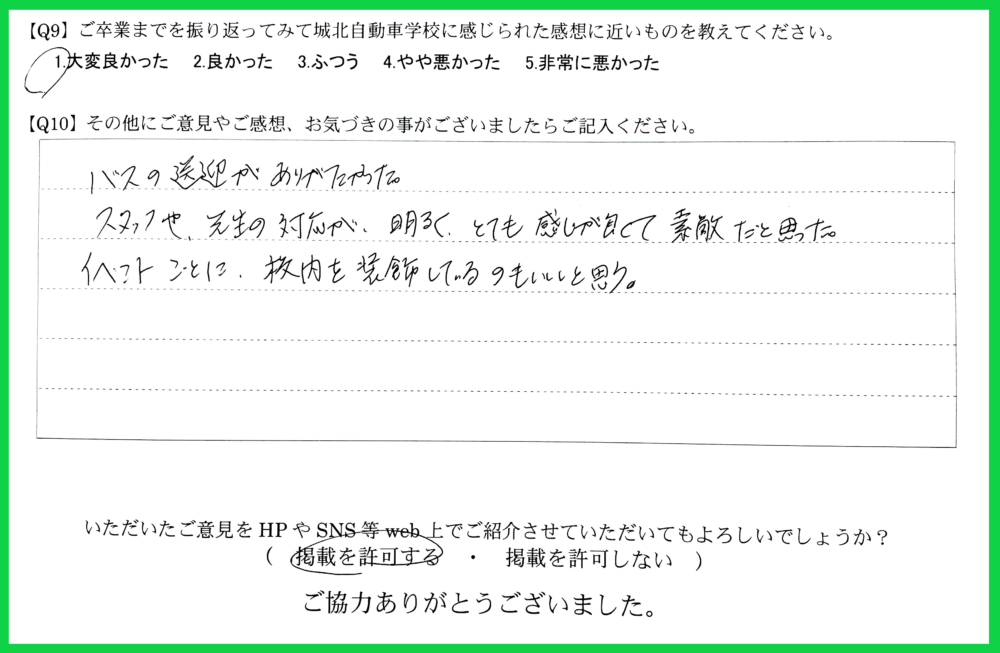 【Q9】ご卒業までを振り返ってみて城北自動車学校に感じられた感想に近いものを教えてください。
1.大変良かった 2.良かった 3.ふつう 4.やや悪かった 5.非常に悪かった
【Q10】その他にご意見やご感想、お気づきの事がございましたらご記入ください。
バスの送迎がありがたかった。
スタッフや、先生の対応が、明るく、とても感じが良くて素敵だと思った。
イベントごとに、校内を装飾しているのもいいと思う。
いただいたご意見をHPやSNS等web上でご紹介させていただいてもよろしいでしょうか？
（ 掲載を許可する ・ 掲載を許可しない ）
ご協力ありがとうございました。